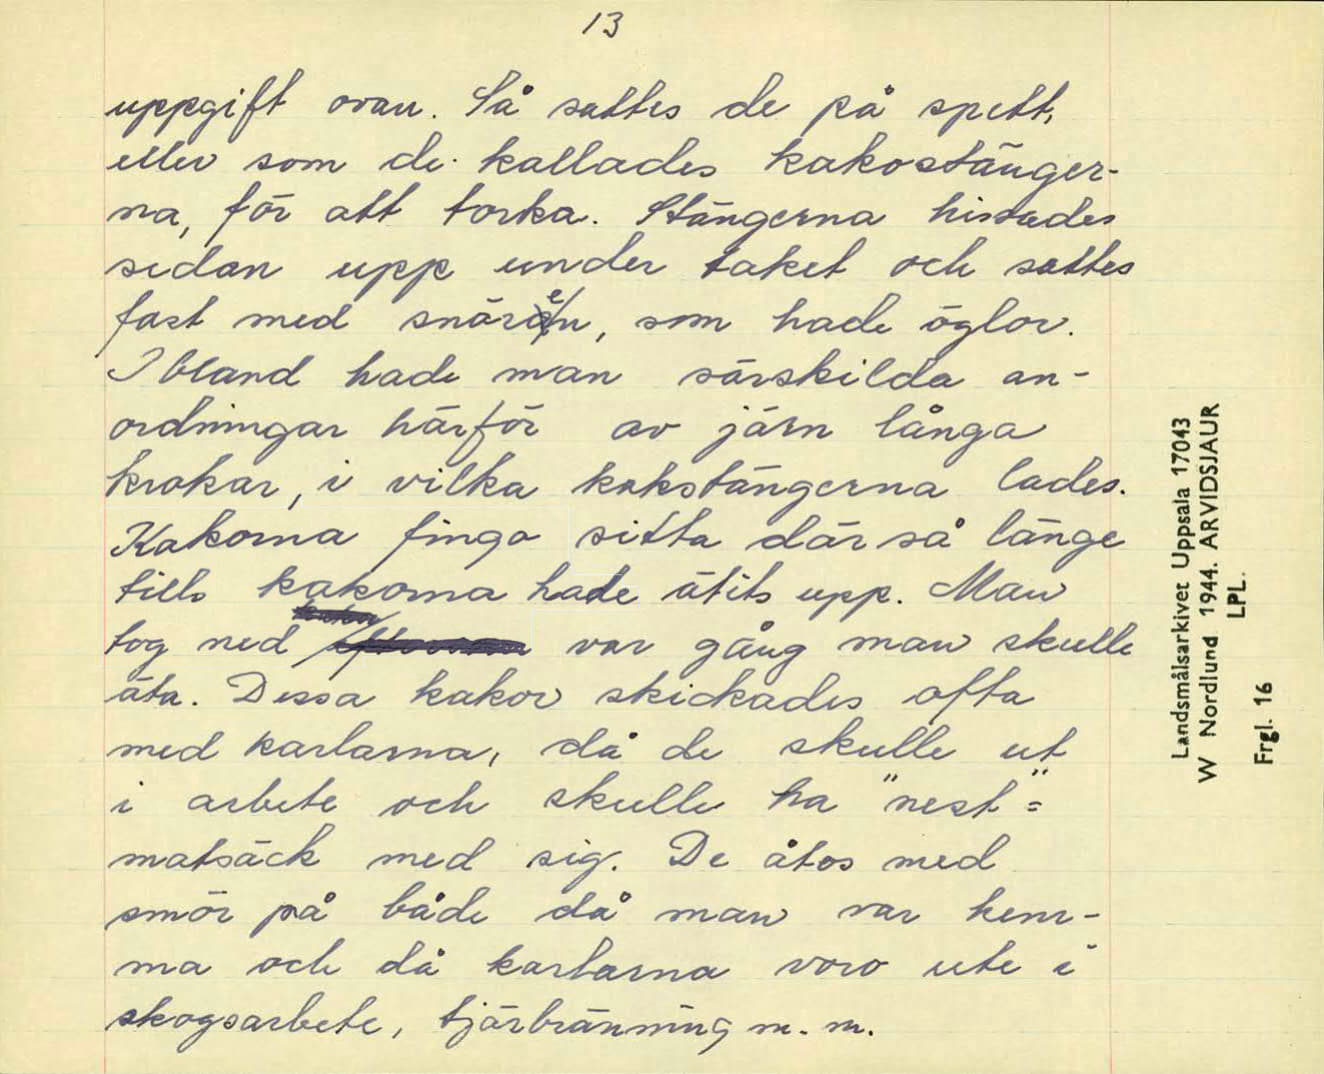 13
uppgift ovan. Så sattes de på spett,
eller som de kallades kakostänger-
na, för att torka. Stängerna hissades
sedan upp under taket och sattes
fast med snören, som hade öglor.
Ibland hade man särskilda an-
ordningar härför av järn långa
krokar, i vilka kakstängerna lades.
Kakorna fingo sitta där så länge
tills kakorna hade ätits upp. Man
tog ned var gång man skulle
äta. Dessa kakor skickades ofta
med karlarna, då de skulle ut
i arbete och skulle ha "nest" =
matsäck med sig. De åtos med
smör på både då man var hem-
ma och då karlarna voro ute i
skogsarbete, tjärbränning m. m.
Landsmålsarkivet Uppsala 17043
W Nordlund 1944. ARVIDSJAUR
LPL.
Frgl. 16